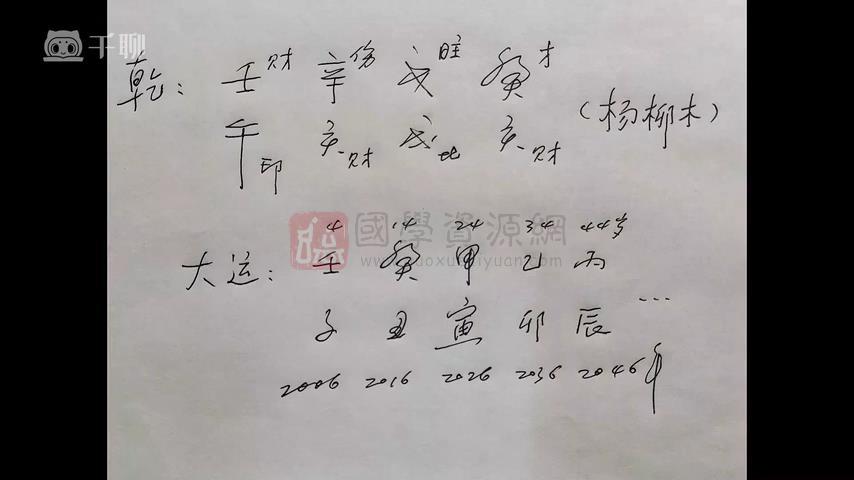 千聊
乾: 壬财 辛伤 戊日主 癸才
午印 亥财 戌比 亥财 (杨柳木)
國學資源網
4 14 24 34 44岁
大运: 壬 癸 甲 乙 丙
子 丑 寅 卯 辰 ...
2006 2016 2026 2036 2046年